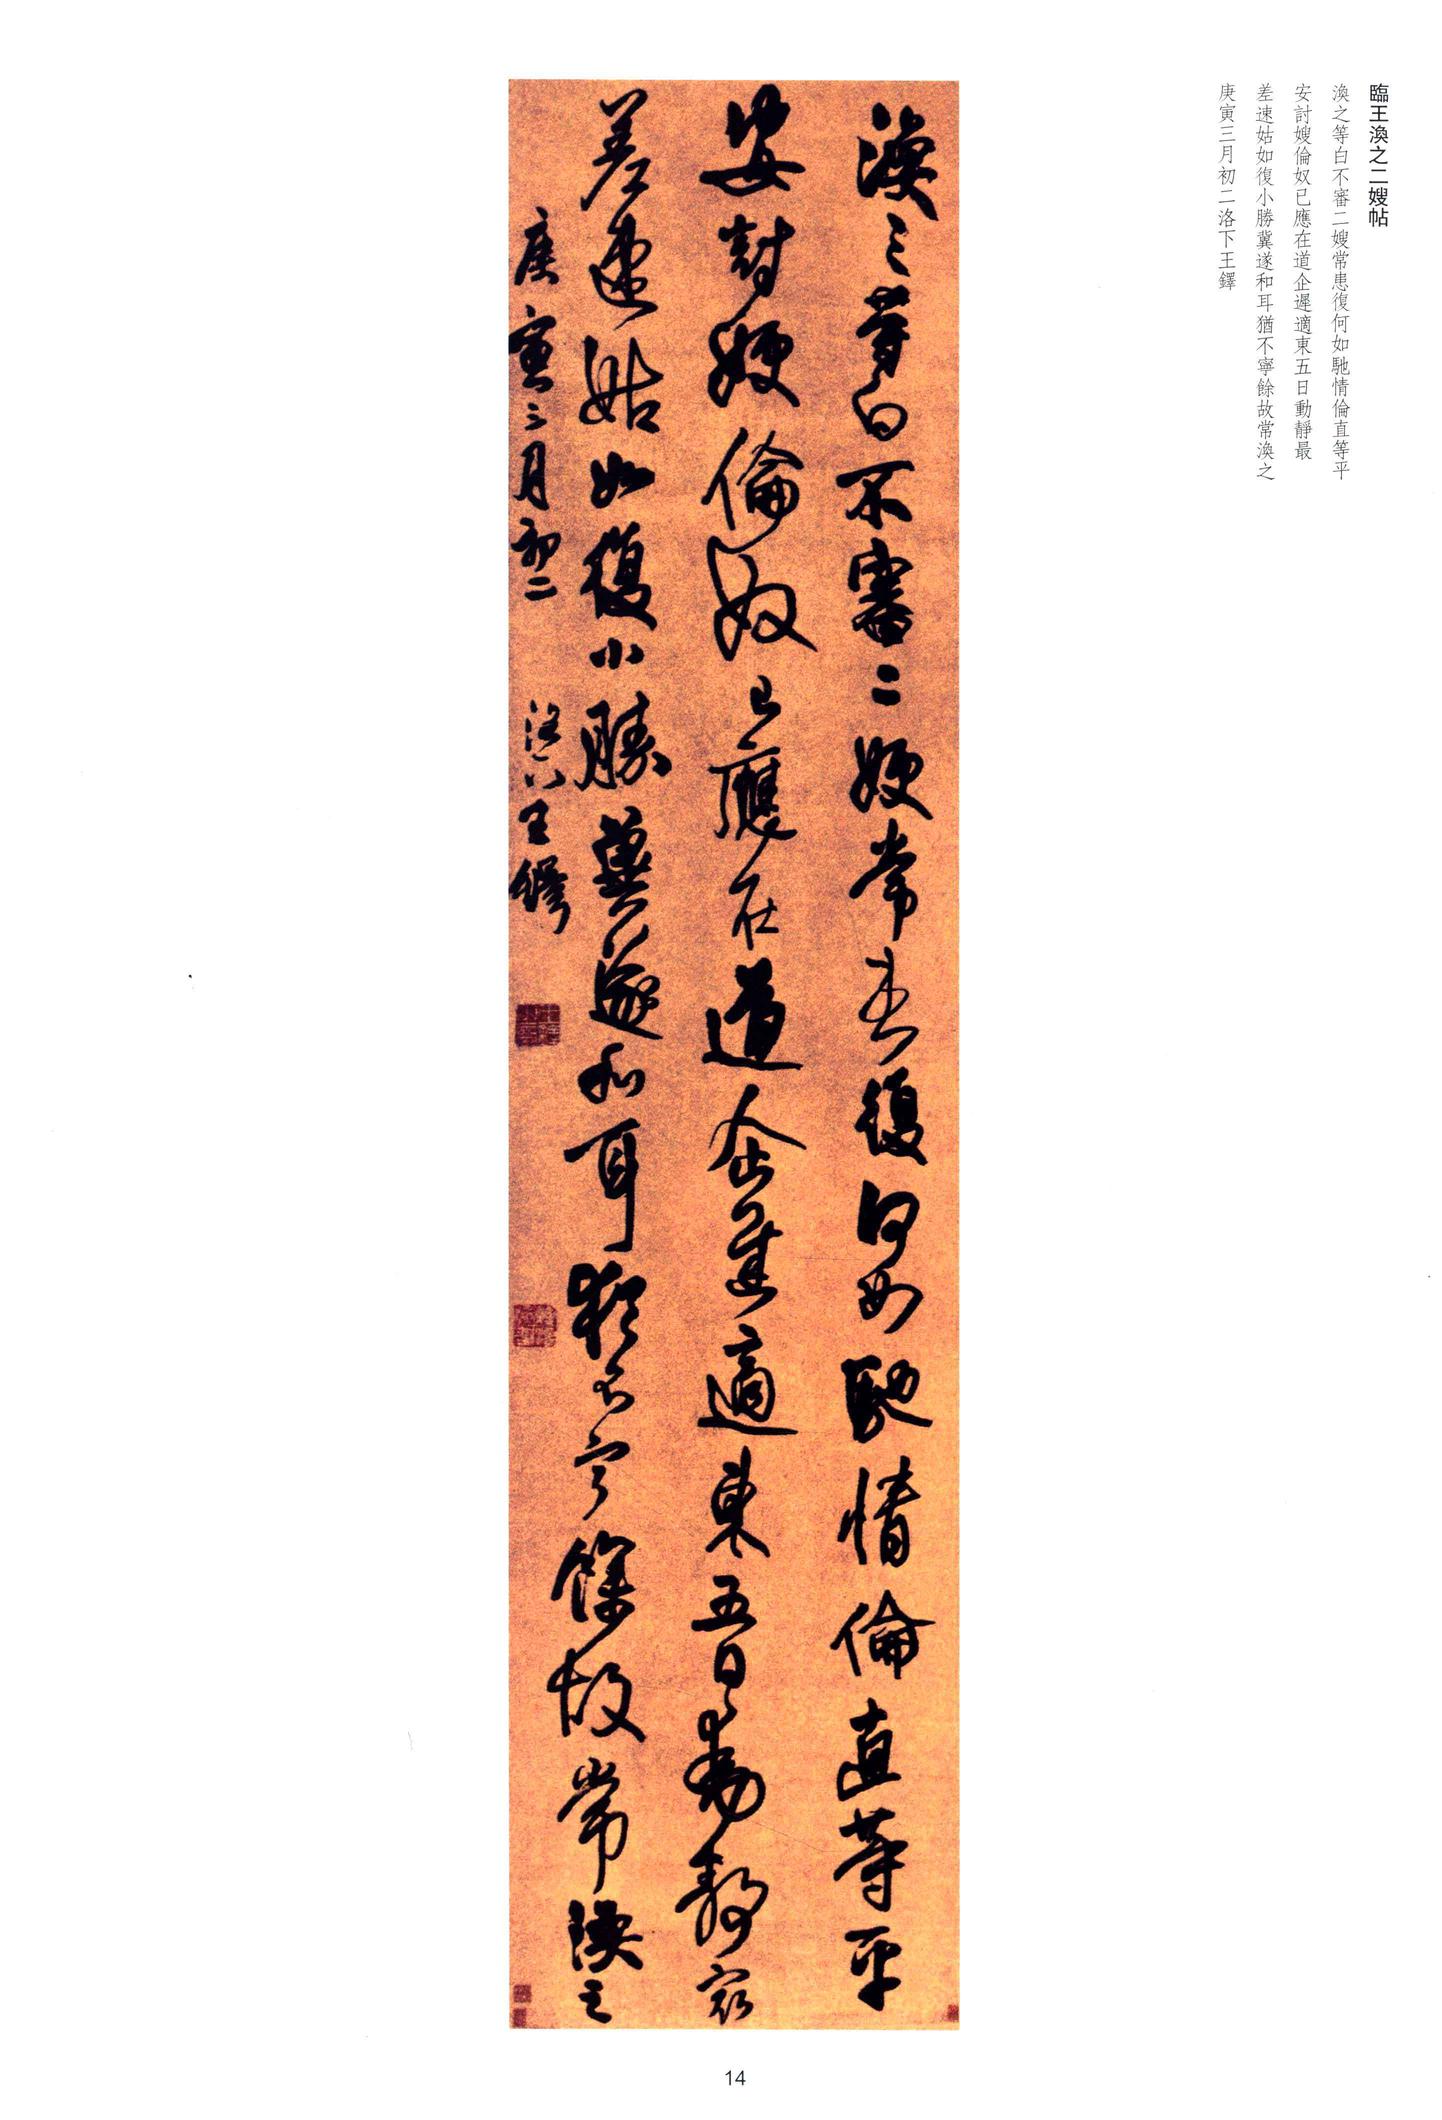 臨王渙之二嫂帖
渙之等白不審二嫂常患復何如馳情倫直等平
安討嫂倫奴已應在道企遲適東五日動靜最
差速姑如復小勝冀遂和耳猶不寧餘故常渙之
庚寅三月初二洛下王鐸
渙之等白不審二嫂常患復何如馳情倫直等平
安討嫂倫奴已應在道企遲適東五日動靜最
差速姑如復小勝冀遂和耳猶不寧餘故常渙之
庚寅三月初二 洛下王鐸
14